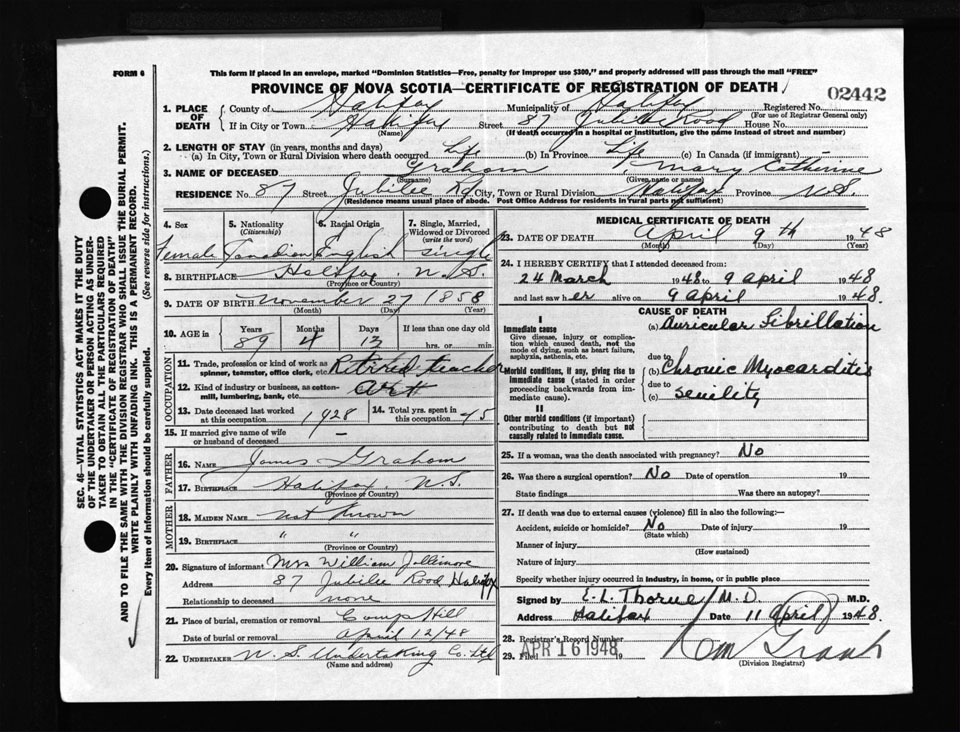 FORM 6
This form if placed in an envelope, marked "Dominion Statistics—Free, penalty for improper use $300," and properly addressed will pass through the mail "FREE"
PROVINCE OF NOVA SCOTIA—CERTIFICATE OF REGISTRATION OF DEATH
02442
1. PLACE OF DEATH
County of Halifax Municipality of Halifax Registered No.
(For use of Registrar General only)
If in City or Town Halifax Street 87 Jubilee Road House No.
(Name) (If death occurred in a hospital or institution, give the name instead of street and number)
2. LENGTH OF STAY (in years, months and days)
(a) In City, Town or Rural Division where death occurred Life (b) In Province Life (c) In Canada (if immigrant) -
3. NAME OF DECEASED Graham Mary Catherine
(Surname) (Given name or names)
RESIDENCE No. 87 Street Jubilee Rd City, Town or Rural Division Halifax Province N.S.
(Residence means usual place of abode. Post Office Address for residents in rural parts not sufficient)
4. Sex
Female
5. Nationality
(Citizenship)
Canadian
6. Racial Origin
English
7. Single, Married, Widowed or Divorced
(write the word)
single
8. BIRTHPLACE Halifax. N.S.
(Province or Country)
9. DATE OF BIRTH November 27 1858
(Month) (Day) (Year)
10. AGE in
Years Months Days If less than one day old
89 4 13 hrs. or min.
OCCUPATION
11. Trade, profession or kind of work as spinner, teamster, office clerk, etc. Retired teacher
12. Kind of industry or business, as cotton-mill, lumbering, bank, etc. Art
13. Date deceased last worked at this occupation 1928
14. Total yrs. spent in this occupation 45
15. If married give name of wife or husband of deceased -
FATHER
16. NAME James Graham
17. BIRTHPLACE Halifax. N.S.
(Province or Country)
MOTHER
18. MAIDEN NAME not known
19. BIRTHPLACE " "
(Province or Country)
20. Signature of informant Mrs William Jollimore
Address 87 Jubilee Road Halifax
Relationship to deceased none
21. Place of burial, cremation or removal Camp Hill
Date of burial or removal April 12/48
22. UNDERTAKER N. S. Undertaking Co. Ltd
(Name and address)
MEDICAL CERTIFICATE OF DEATH
23. DATE OF DEATH April 9th 1948
(Month) (Day) (Year)
24. I HEREBY CERTIFY that I attended deceased from:
24 March 1948 to 9 April 1948
and last saw her alive on 9 April 1948.
CAUSE OF DEATH
I
Immediate cause
Give disease, injury or complication which caused death, not the mode of dying, such as heart failure, asphyxia, asthenia, etc.
(a) Auricular Fibrillation
due to
Morbid conditions, if any, giving rise to immediate cause (stated in order proceeding backwards from immediate cause).
(b) Chronic Myocarditis
due to
(c) senility
II
Other morbid conditions (if important) contributing to death but not causally related to immediate cause.
25. If a woman, was the death associated with pregnancy? No
26. Was there a surgical operation? No Date of operation 19
State findings Was there an autopsy?
27. If death was due to external causes (violence) fill in also the following:—
Accident, suicide or homicide? No Date of injury 19
(State which)
Manner of injury
(How sustained)
Nature of injury
Specify whether injury occurred in industry, in home, or in public place
Signed by E. L. Thorne/M.D. M.D.
Address Halifax Date 11 April 1948.
28. Registrar's Record Number
29. Filed 19
APR 16 1948
(Division Registrar)
SEC. 46—VITAL STATISTICS ACT MAKES IT THE DUTY
OF THE UNDERTAKER OR PERSON ACTING AS UNDER-
TAKER TO OBTAIN ALL THE PARTICULARS REQUIRED
IN THE "CERTIFICATE OF REGISTRATION OF DEATH"
AND TO FILE THE SAME WITH THE DIVISION REGISTRAR WHO SHALL ISSUE THE BURIAL PERMIT.
WRITE PLAINLY WITH UNFADING INK. THIS IS A PERMANENT RECORD.
Every item of information should be carefully supplied. (See reverse side for instructions.)